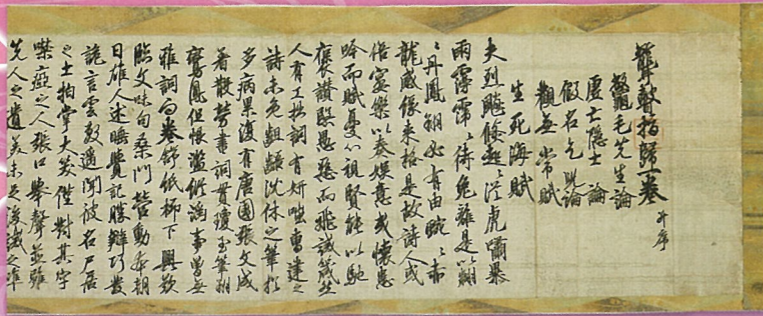 聾瞽指歸一卷 并序
鼈毛先生論
虛亡隱士論
假名乞兒論
觀無常賦
生死海賦
夫烈飈倐起從虎嘯暴
雨霶霈待兔離是以翽
〻丹鳳翔必有由蜿〻赤
龍感緣来格是故詩人或
陪宴樂以奏娯意或懷患
吟而賦憂心視賢能以馳
褒讚覧愚惡而飛誡箴然
人有工拙詞有妍嗤曹建之
詩未免齟齬沈休之筆猶
多病累復有唐國張文成
著散勞書詞貫瓊玉筆翔
鸞鳳但恨濫縱淫事曽無
雅詞面卷舒紙柳下興歎
臨文味句桑門營動本朝
日雄人述睡覺記勝辯巧發
詭言雲敷遥聞彼名尸居
之士拍掌大笑纔對其字
噤瘂之人張口舉聲並雖
先人之遺美未足後誡之準